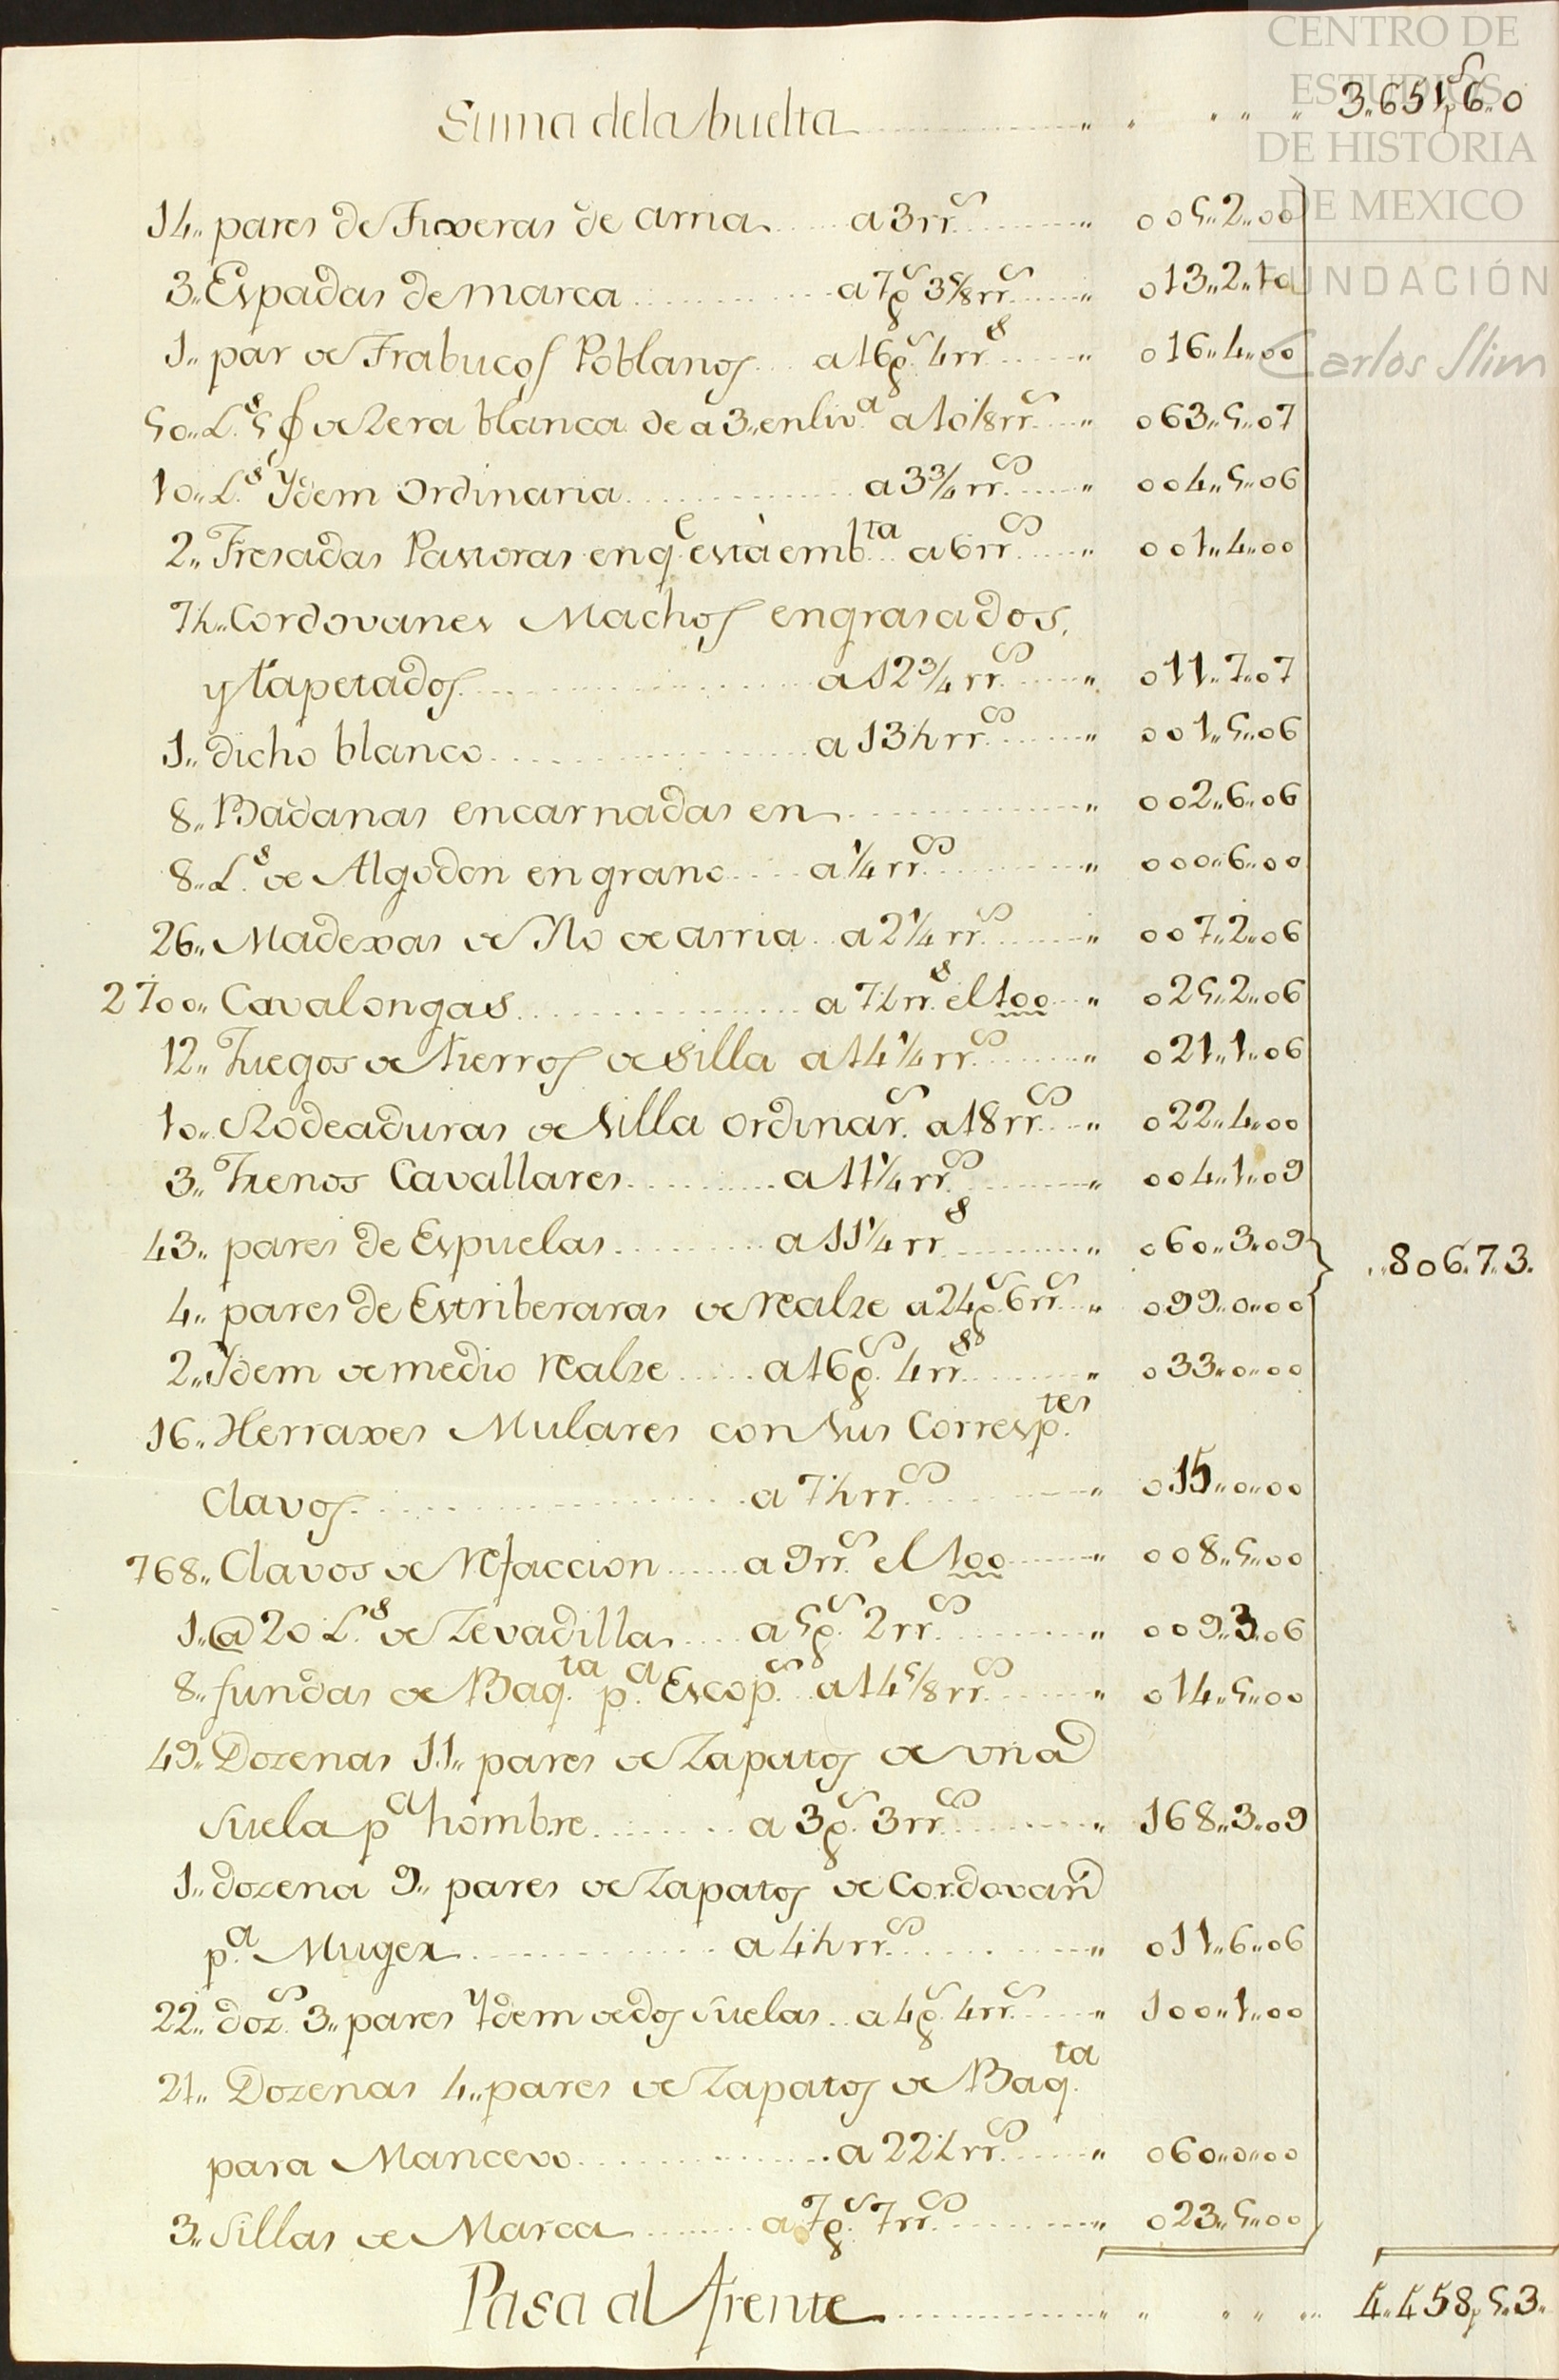 CENTRO DE
ESTUDIOS
DE HISTORIA
DE MEXICO
FUNDACIÓN
Carlos Slim
Suma dela buelta 3,,651p.s6,,0
14,, pares de Tixeras de arria a 3 rr.s 005,,2,,00
3,, Espadas de marca a 7p.s 3 5/8 rr.s 013,,2,,10
1,, par de Trabucos Poblanos a 16p.s 4 rr.s 016,,4,,00
50,, L.s 5 de Zera blanca de a 3,, en liv.a a 10 1/8 rr.s 063,,5,,07
10,, L.s Ydem Ordinaria a 3 3/4 rr.s 004,,5,,06
2,, Fresadas Pastoras en q.e está emb.ta a 6 rr.s 001,,4,,00
7½,, Cordovanes Machos engrasados,
y tapetados a 12 3/4 rr.s 011,,7,,07
1,, dicho blanco a 13½ rr.s 001,,5,,06
8,, Badanas encarnadas en 002,,6,,06
8,, L.s de Algodon en grano a 1/4 rr.s 000,,6,,00
26,, Madexas de Ylo de arria a 2 1/4 rr.s 007,,2,,06
2700,, Cavalongas a 7½ rr.s el 100 025,,2,,06
12,, Juegos de fierros de Silla a 14 1/4 rr.s 021,,1,,06
10,, Rodeaduras de silla ordinar.s a 18 rr.s 022,,4,,00
3,, Frenos Cavallares a 11 1/4 rr.s 004,,1,,09
43,, pares de Espuelas a 11 1/4 rr.s 060,,3,,09
,,806,,7,,3.
4,, pares de Estriberaras de realze a 24p.s 6 rr.s 099,,0,,00
2,, Ydem de medio realze a 16p.s 4 rr.s 033,,0,,00
16,, Herraxes Mulares con sus Corresp.tes
Clavos a 7½ rr.s 015,,0,,00
768,, Clavos de Refaccion a 9 rr.s el 100 008,,5,,00
1,, @ 20 L.s de Zevadilla a 5p.s 2 rr.s 009,,3,,06
8,, fundas de Baq.ta p.a Escop.s a 14 5/8 rr.s 014,,5,,00
49,, Dozenas 11,, pares de Zapatos de una
suela p.a hombre a 3p.s 3 rr.s 168,,3,,09
1,, dozena 9,, pares de Zapatos de Cordovan
p.a Muger a 4½ rr.s 011,,6,,06
22,, doz.s 3,, pares Ydem de dos suelas a 4p.s 4 rr.s 100,,1,,00
21,, Dozenas 4,, pares de Zapatos de Baq.ta
para Mancevo a 22½ rr.s 060,,0,,00
3,, Sillas de Marca a 7p.s 7 rr.s 023,,5,,00
Pasa al frente 4,,458p 5,,3,,